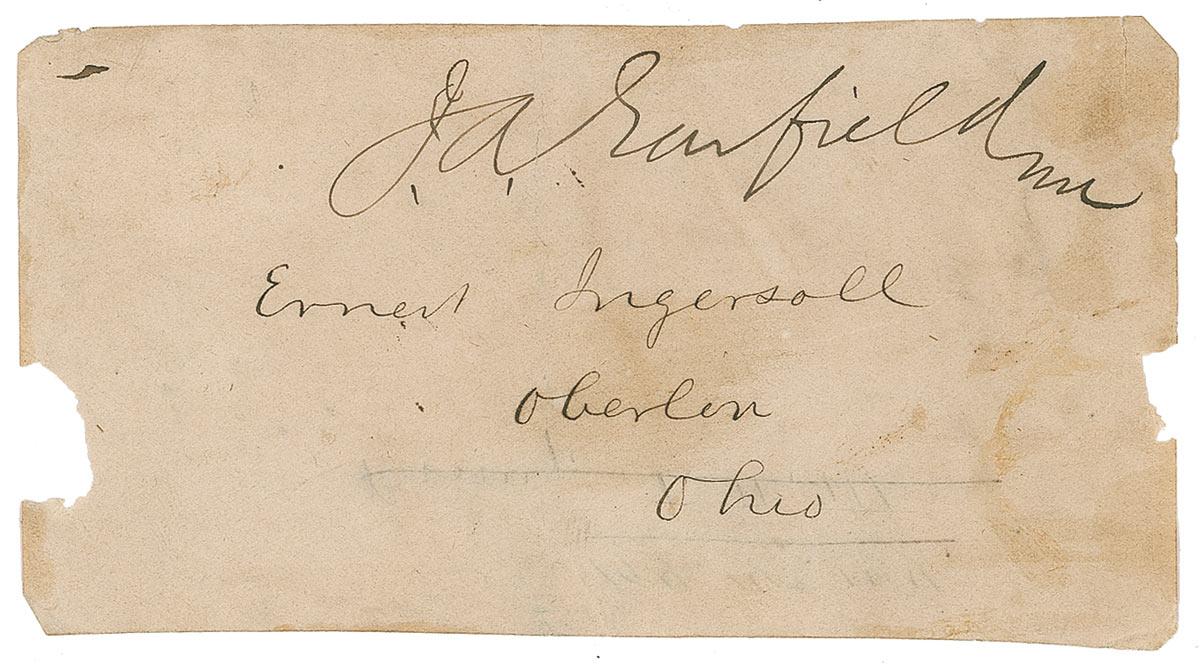 J. A. Garfield MC
Ernest Ingersoll
Oberlin
Ohio